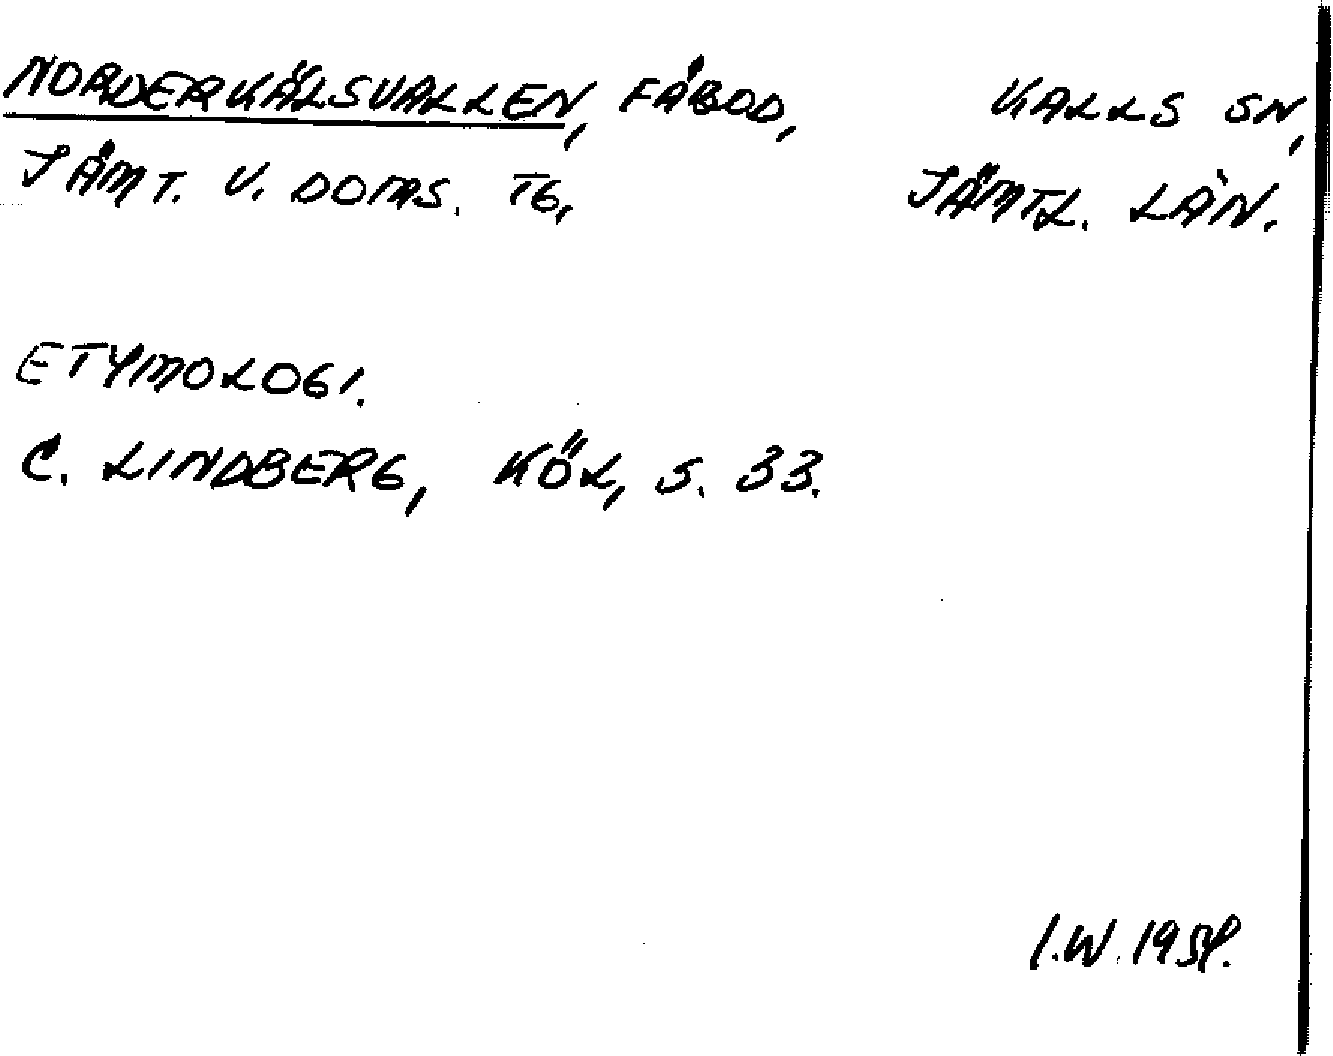 NORDERKÄLSVALLEN, FÅBOD, KALLS SN,
JÄMT. V. DOMS. TG, JÄMTL. LÄN.
ETYMOLOGI.
C. LINDBERG, KÖL, S. 33.
I.W.